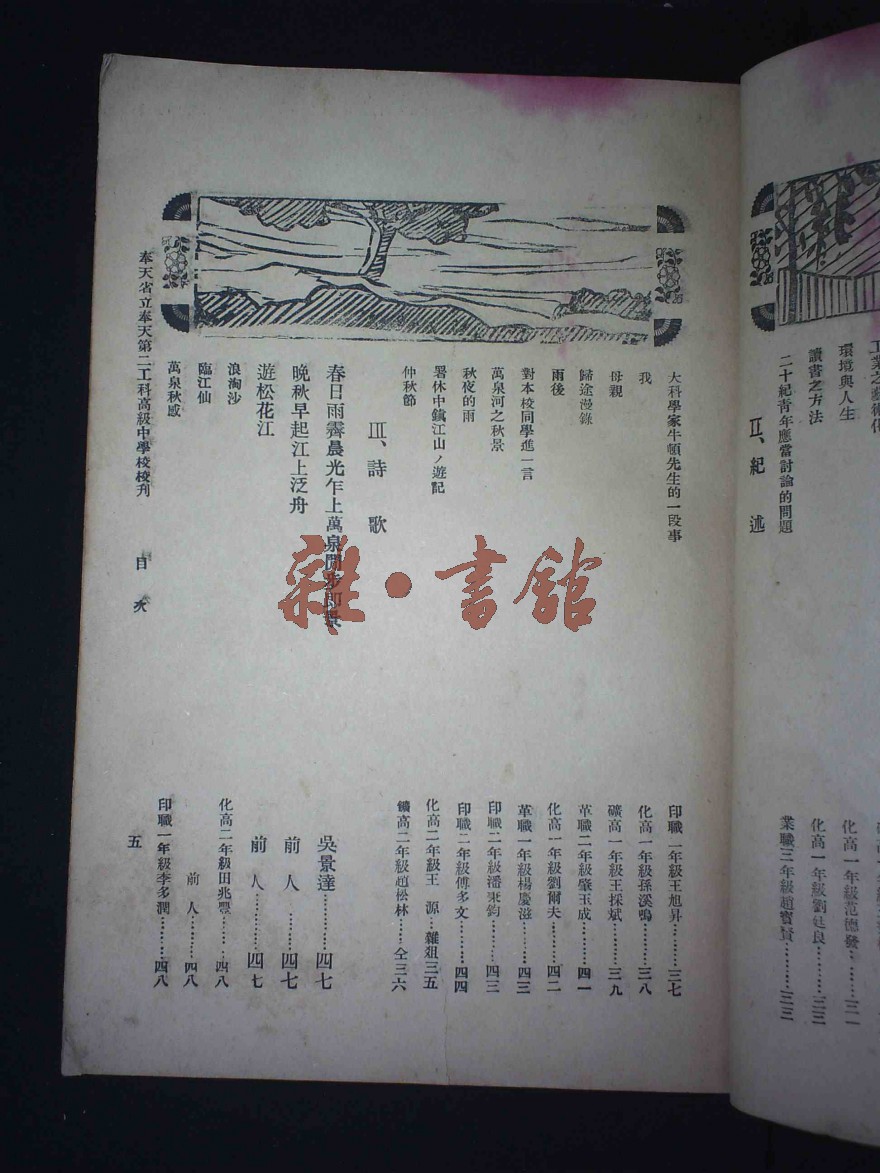 環境與人生
讀書之方法
二十紀靑年應當討論的問題
II、紀 述
化高一年級范德發………三一
化高一年級劉廷良………三三
業職三年級趙寶賢………三三
大科學家牛頓先生的一段事 印職一年級王旭昇………三七
我 化高一年級孫溪鳴………三八
母親 礦高一年級王採斌………三九
歸途漫錄 革職二年級肇玉成………四一
雨後 化高一年級劉爾夫………四二
對本校同學進一言 革職一年級楊慶滋………四三
萬泉河之秋景 印職二年級潘秉鈞………四三
秋夜的雨 印職二年級傅多文………四四
署休中鎭江山ノ遊記 化高二年級王 源…雜俎三五
仲秋節 鑛高二年級趙松林……仝三六
III、詩 歌
春日雨霽晨光乍上萬泉閒步卽景 吳景達………四七
晚秋早起江上泛舟 前 人………四七
遊松花江 前 人………四七
浪淘沙 化高二年級田兆豐………四八
臨江仙 前 人………四八
萬泉秋感 印職一年級李多潤………四八
奉天省立奉天第二工科高級中學校校刋 目 次 五
雜·書館